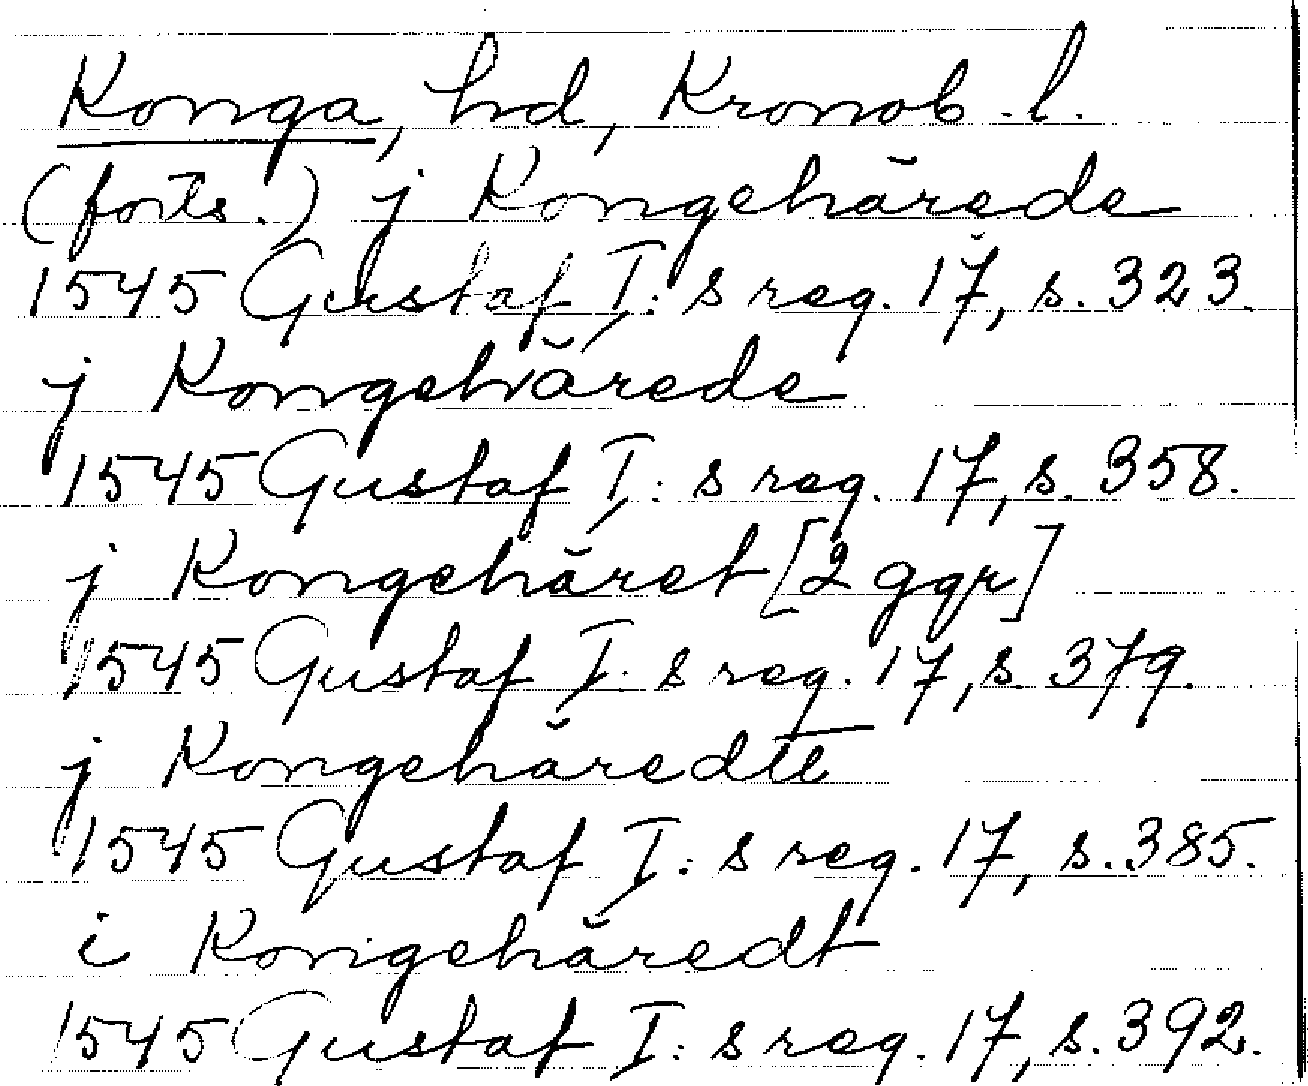 Konga, hd, Kronob. l.
(forts.) j Kongehärede
1545 Gustaf I:s reg. 17, s. 323.
j Kongehärede
1545 Gustaf I:s reg. 17, s. 358.
j Kongehäret [2 ggr]
1545 Gustaf I:s reg. 17, s. 379.
j Kongehäredtt
1545 Gustaf I:s reg. 17, s. 385.
i Kongehäredt
1545 Gustaf I:s reg. 17, s. 392.